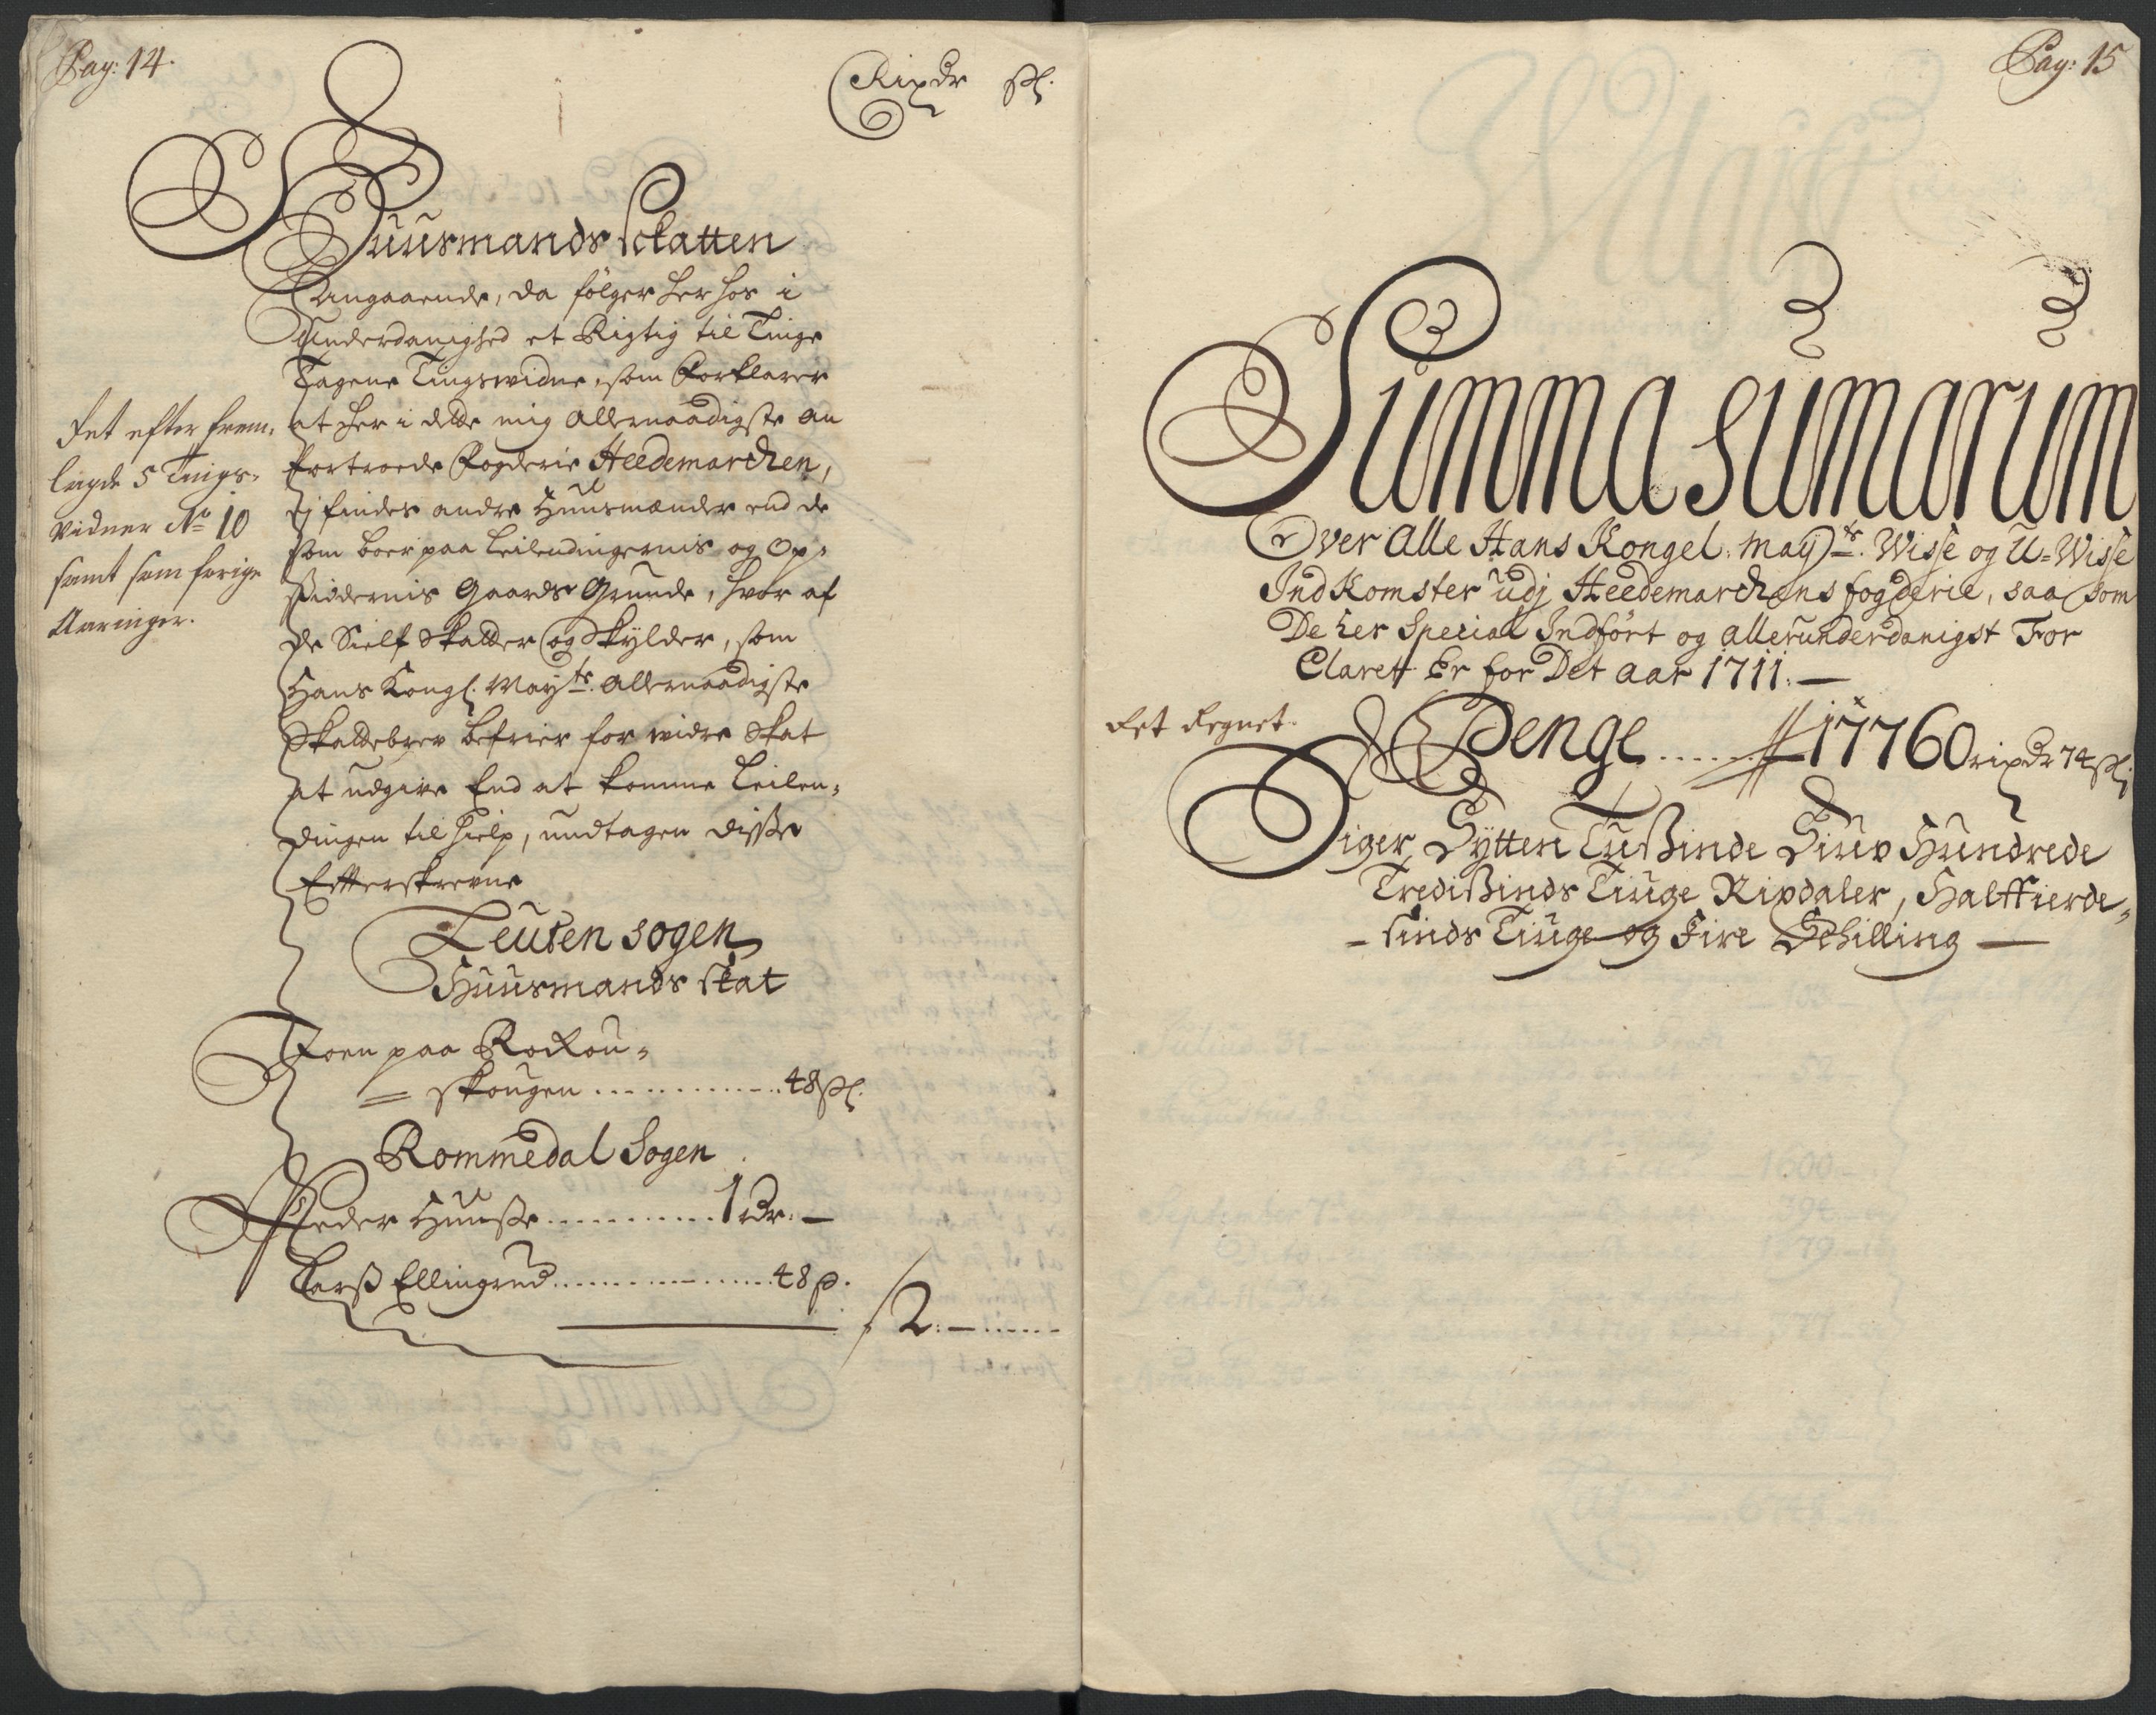 Pag: 14.
Rixdr ßl.
Huusmands Skatten
Angaaende, da følger her hos i
Underdanighed et Rigtig til Tinge
Tagene Tingswidne, som Forklarer
at her i dette mig allernaadigste an
fortroede Fogderie Heedemarchen,
ej findes andre Huusmænder end de
som boer paa Leilendingernis og Op-
siddernis Gaards Grunde, hvor af
de Sielf Skatter og Skylder, som
Hans Kongl. Mayts. allernaadigste
Skattebrev befrier for widre Skat
at udgive End at komme Leilen-
dingen til hielp, undtagen disse
Efterskrevne
Ret efter frem-
lagde 5 Tings-
vidner No 10
samt som forige
Aaringer.
Leuten sogen
Huusmands skat
Joen paa Rockou-
= skougen ............ 48 ßl.
Rommedal Sogen
Peder Huuse ............ 1 dr. —
Larß Ellingrud ............ 48 ß.
2: — ......
Pag: 15
Summa Sumarum
Over Alle Hans Kongel: Mayts. Wisse og U-Wisse
IndKomster udj Heedemarchens fogderie, saa som
De her Special Indført og allerunderdanigst For
Claret Er for Det aar 1711. —
Ret Regnet.
Penge ...... 17760 rixdr 74 ßl:
Siger Sytten Tußinde Siuv Hundrede
Tredißinds Tiuge Rixdaler, Halffierde-
- sinds Tiuge og Fire Schilling —